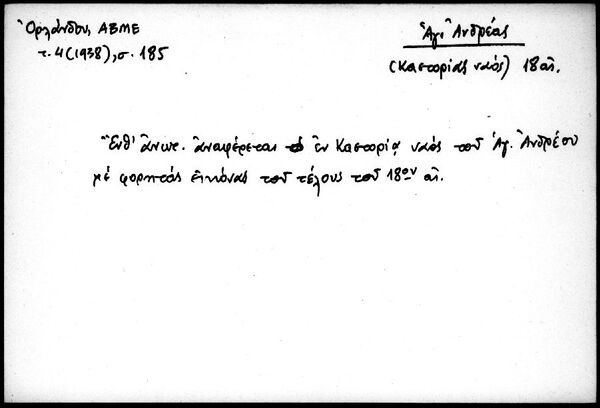 Ὀρλάνδου, ΑΒΜΕ
τ. 4 (1938), σ. 185
Ἁγ. Ἀνδρέας
(Καστορίας ναός) 18 αἰ.
Ἔνθ' ἄνωτ. ἀναφέρεται ἐν Καστορίᾳ ναὸς τοῦ Ἁγ. Ἀνδρέου
μέ φορητάς εἰκόνας τοῦ τέλους τοῦ 18ου αἰ.